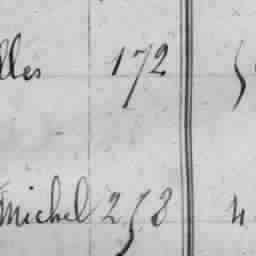 lles 172 5
Michel 258 4